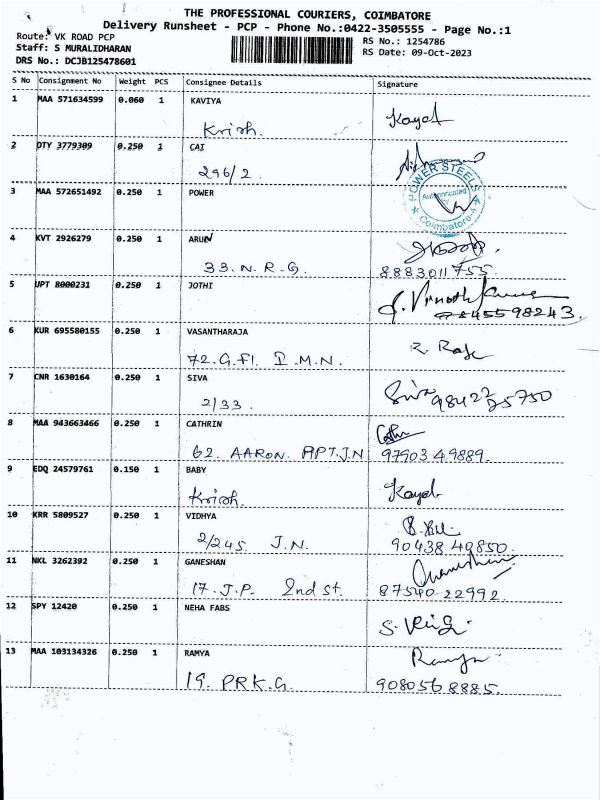 THE PROFESSIONAL COURIERS, COIMBATORE
Delivery Runsheet - PCP - Phone No.:0422-3505555 - Page No.:1
Route: VK ROAD PCP
RS No.: 1254786
Staff: S MURALIDHARAN
RS Date: 09-Oct-2023
DRS No.: DCJB125478601
S No Consignment No Weight PCS Consignee Details Signature
1 MAA 571634599 0.060 1 KAVIYA
Krish. Kayal
2 DTY 3779309 0.250 1 CAI
296/2.
3 MAA 572651492 0.250 1 POWER
POWER STEELS
Coimbatore-4
4 KVT 2926279 0.250 1 ARUN
33. N. R. G. 8883011755
5 UPT 8000231 0.250 1 JOTHI
9845598243.
6 KUR 695580155 0.250 1 VASANTHARAJA
72. G. Fl. I. M. N.
7 CNR 1630164 0.250 1 SIVA
2/33. Siva 98422 25750
8 MAA 943663466 0.250 1 CATHRIN
62. AARON. APT. J.N 97903 49889.
9 EDQ 24579761 0.150 1 BABY
Krish. Kayal
10 KRR 5809527 0.250 1 VIDHYA
2/245 J.N. 90438 40850.
11 NKL 3262392 0.250 1 GANESHAN
17. J.P. 2nd st. 87540 22992
12 SPY 12420 0.250 1 NEHA FABS
13 MAA 103134326 0.250 1 RAMYA
Ramya
19. PRK.G. 9080568885.